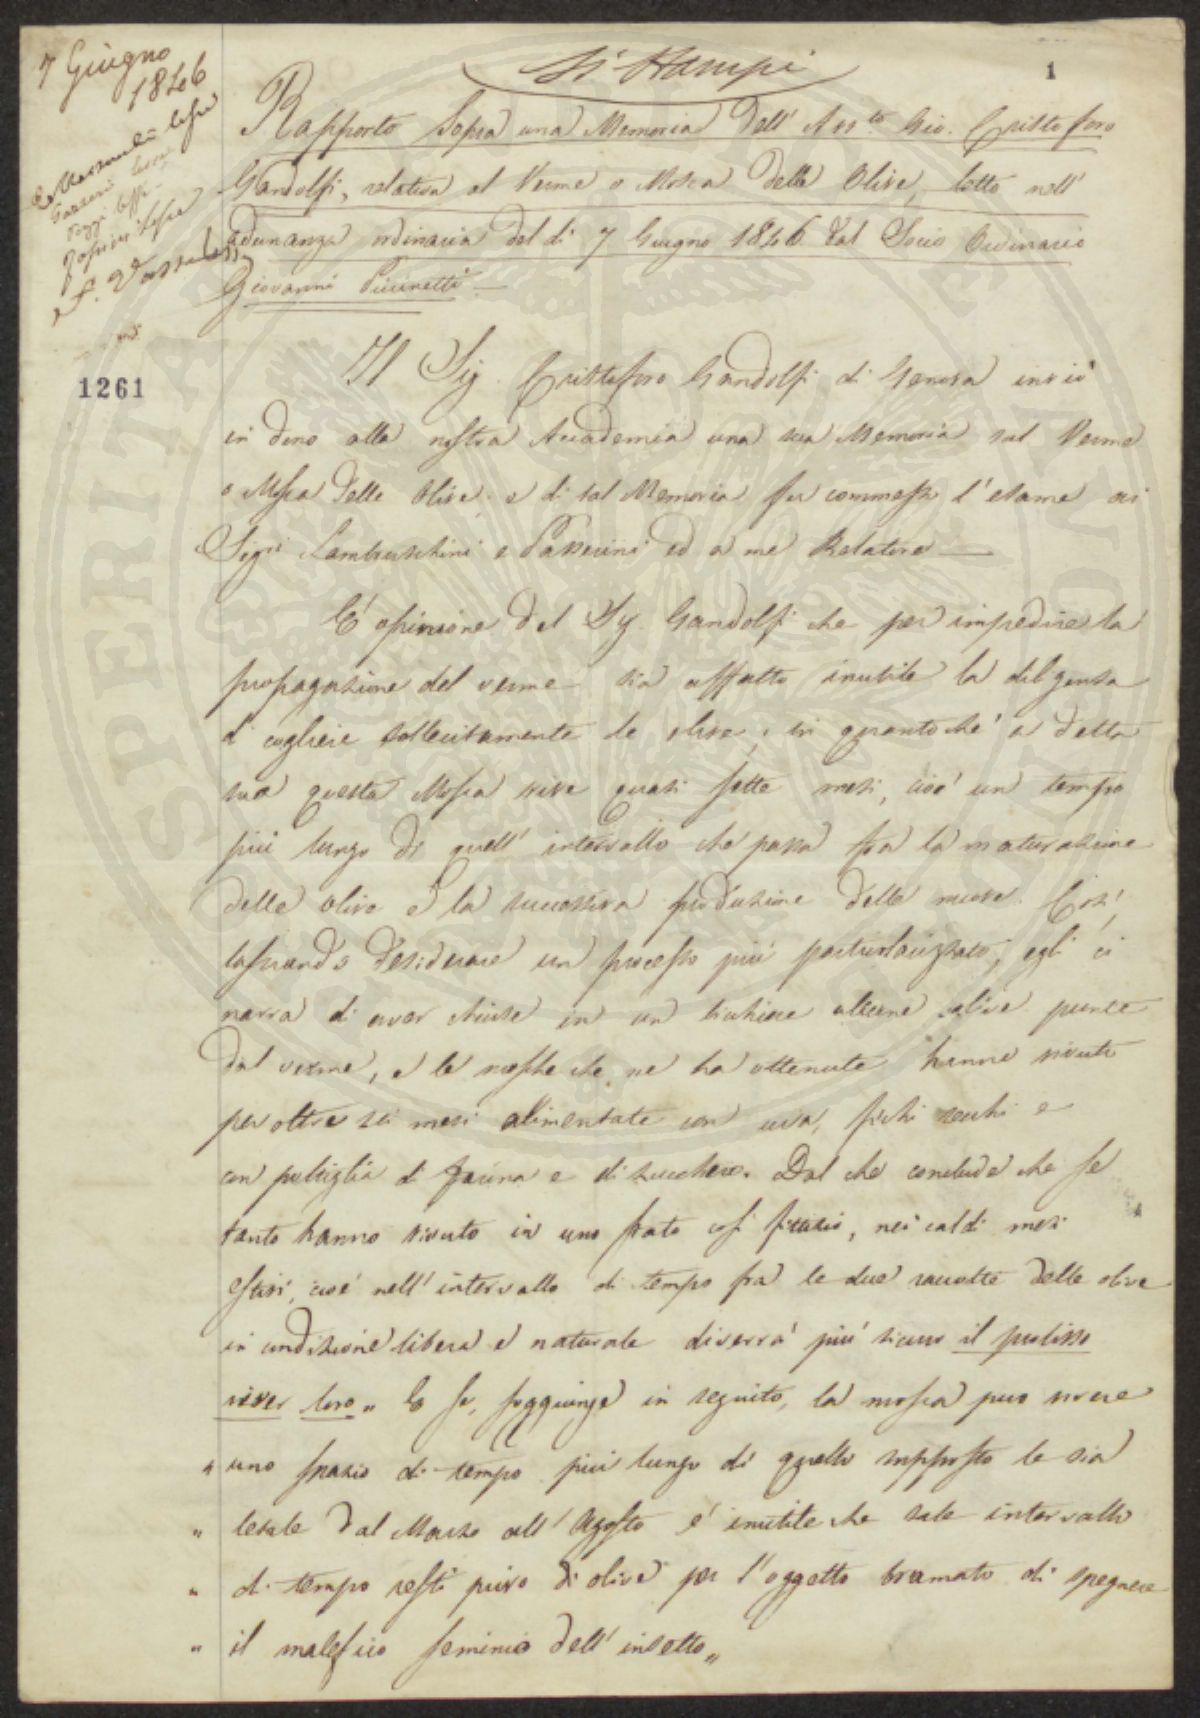 7 Giugno
1846
Si Stampi
1
Rapporto Sopra una Memoria dell' Avv.to Gio. Cristoforo
Gandolfi, relativa al Verme o Mosca delle Olive, letto nell'
adunanza ordinaria del dì 7 Giugno 1846 dal Socio Ordinario
Giovanni Piccinetti
1261
Il Sig. Cristoforo Gandolfi di Genova inviò
in dono alla nostra Accademia una sua Memoria sul Verme
o Mosca delle Olive, e di tal Memoria fu commesso l'esame ai
Sigri Lambruschini e Passerini ed a me Relatore
È opinione del Sig. Gandolfi che per impedire la
propagazione del verme sia affatto inutile la diligenza
di cogliere sollecitamente le olive, in quantochè a detta
sua questa Mosca vive quasi sette mesi, cioè un tempo
più lungo di quell' intervallo che passa fra la maturazione
delle olive e la successiva produzione delle nuove. Così,
lasciando desiderare un processo più particolarizzato, egli ci
narra di aver chiuse in un bicchiere alcune olive punte
dal verme, e le mosche che ne ha ottenute hanno vivuto
per oltre sei mesi alimentate con uva, fichi secchi e
con poltiglia di farina e di zucchero. Dal che conclude che se
tanto hanno vivuto in uno stato così fittizio, nei caldi mesi
estivi, cioè nell' intervallo di tempo fra le due raccolte delle olive
in condizione libera e naturale diverrà più sicuro il prolisso
viver loro „ E se, soggiunge in seguito, la mosca può vivere
„ uno spazio di tempo più lungo di quello supposto le sia
„ letale dal Marzo all' Agosto è inutile che tale intervallo
„ di tempo resti privo di olive per l'oggetto bramato di spegnere
„ il malefico seminio dell' insetto „